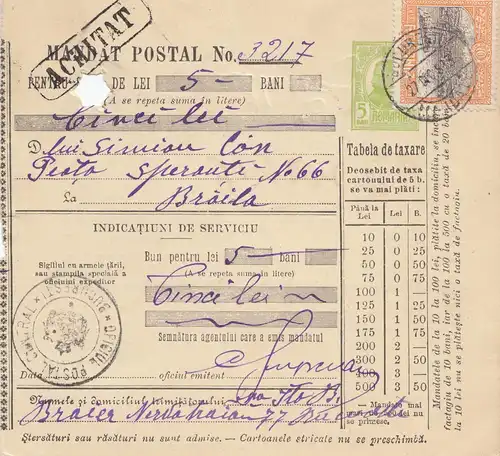 ACHITAT
MANDAT POSTAL No. 3217
PENTRU DE LEI 5 BANI
(A se repeta suma în litere)
Cinci lei
D. lui Simion Con
Piața Speranti No 66
La Brăila
INDICAȚIUNI DE SERVICIU
Sigiliul cu armele țării,
sau stampila specială a
oficiului expeditor
Bun pentru lei 5 bani
(A se repeta suma în litere)
Cinci lei
Semnătura agentului care a emis mandatul
Data oficiul emitent
Numele și domiciliul trimițătorului
77
Ștersături sau răsături nu sunt admise. — Cartoanele stricate nu se preschimbă.
OFICIUL POSTAL CENTRAL
BUCURESTI
5
Tabela de taxare
Deosebit de taxa
cartonului de 5 b.
se va mai plăti:
Până la Lei Lei B.
10 0 10
25 0 25
50 0 50
75 0 75
100 1 —
125 1 25
150 1 50
175 1 75
200 2 —
300 2 50
400 3 —
500 3 50
— Mandate mai
nu se
primesc.
Mandatele de la 10 la 100 lei, plătite la domiciliu, se înc
factagiu de 10 bani, iar de la 100 la 500 cu o taxă de 20 bani.
la 10 lei nu se plătește nici o taxă de factagiu.